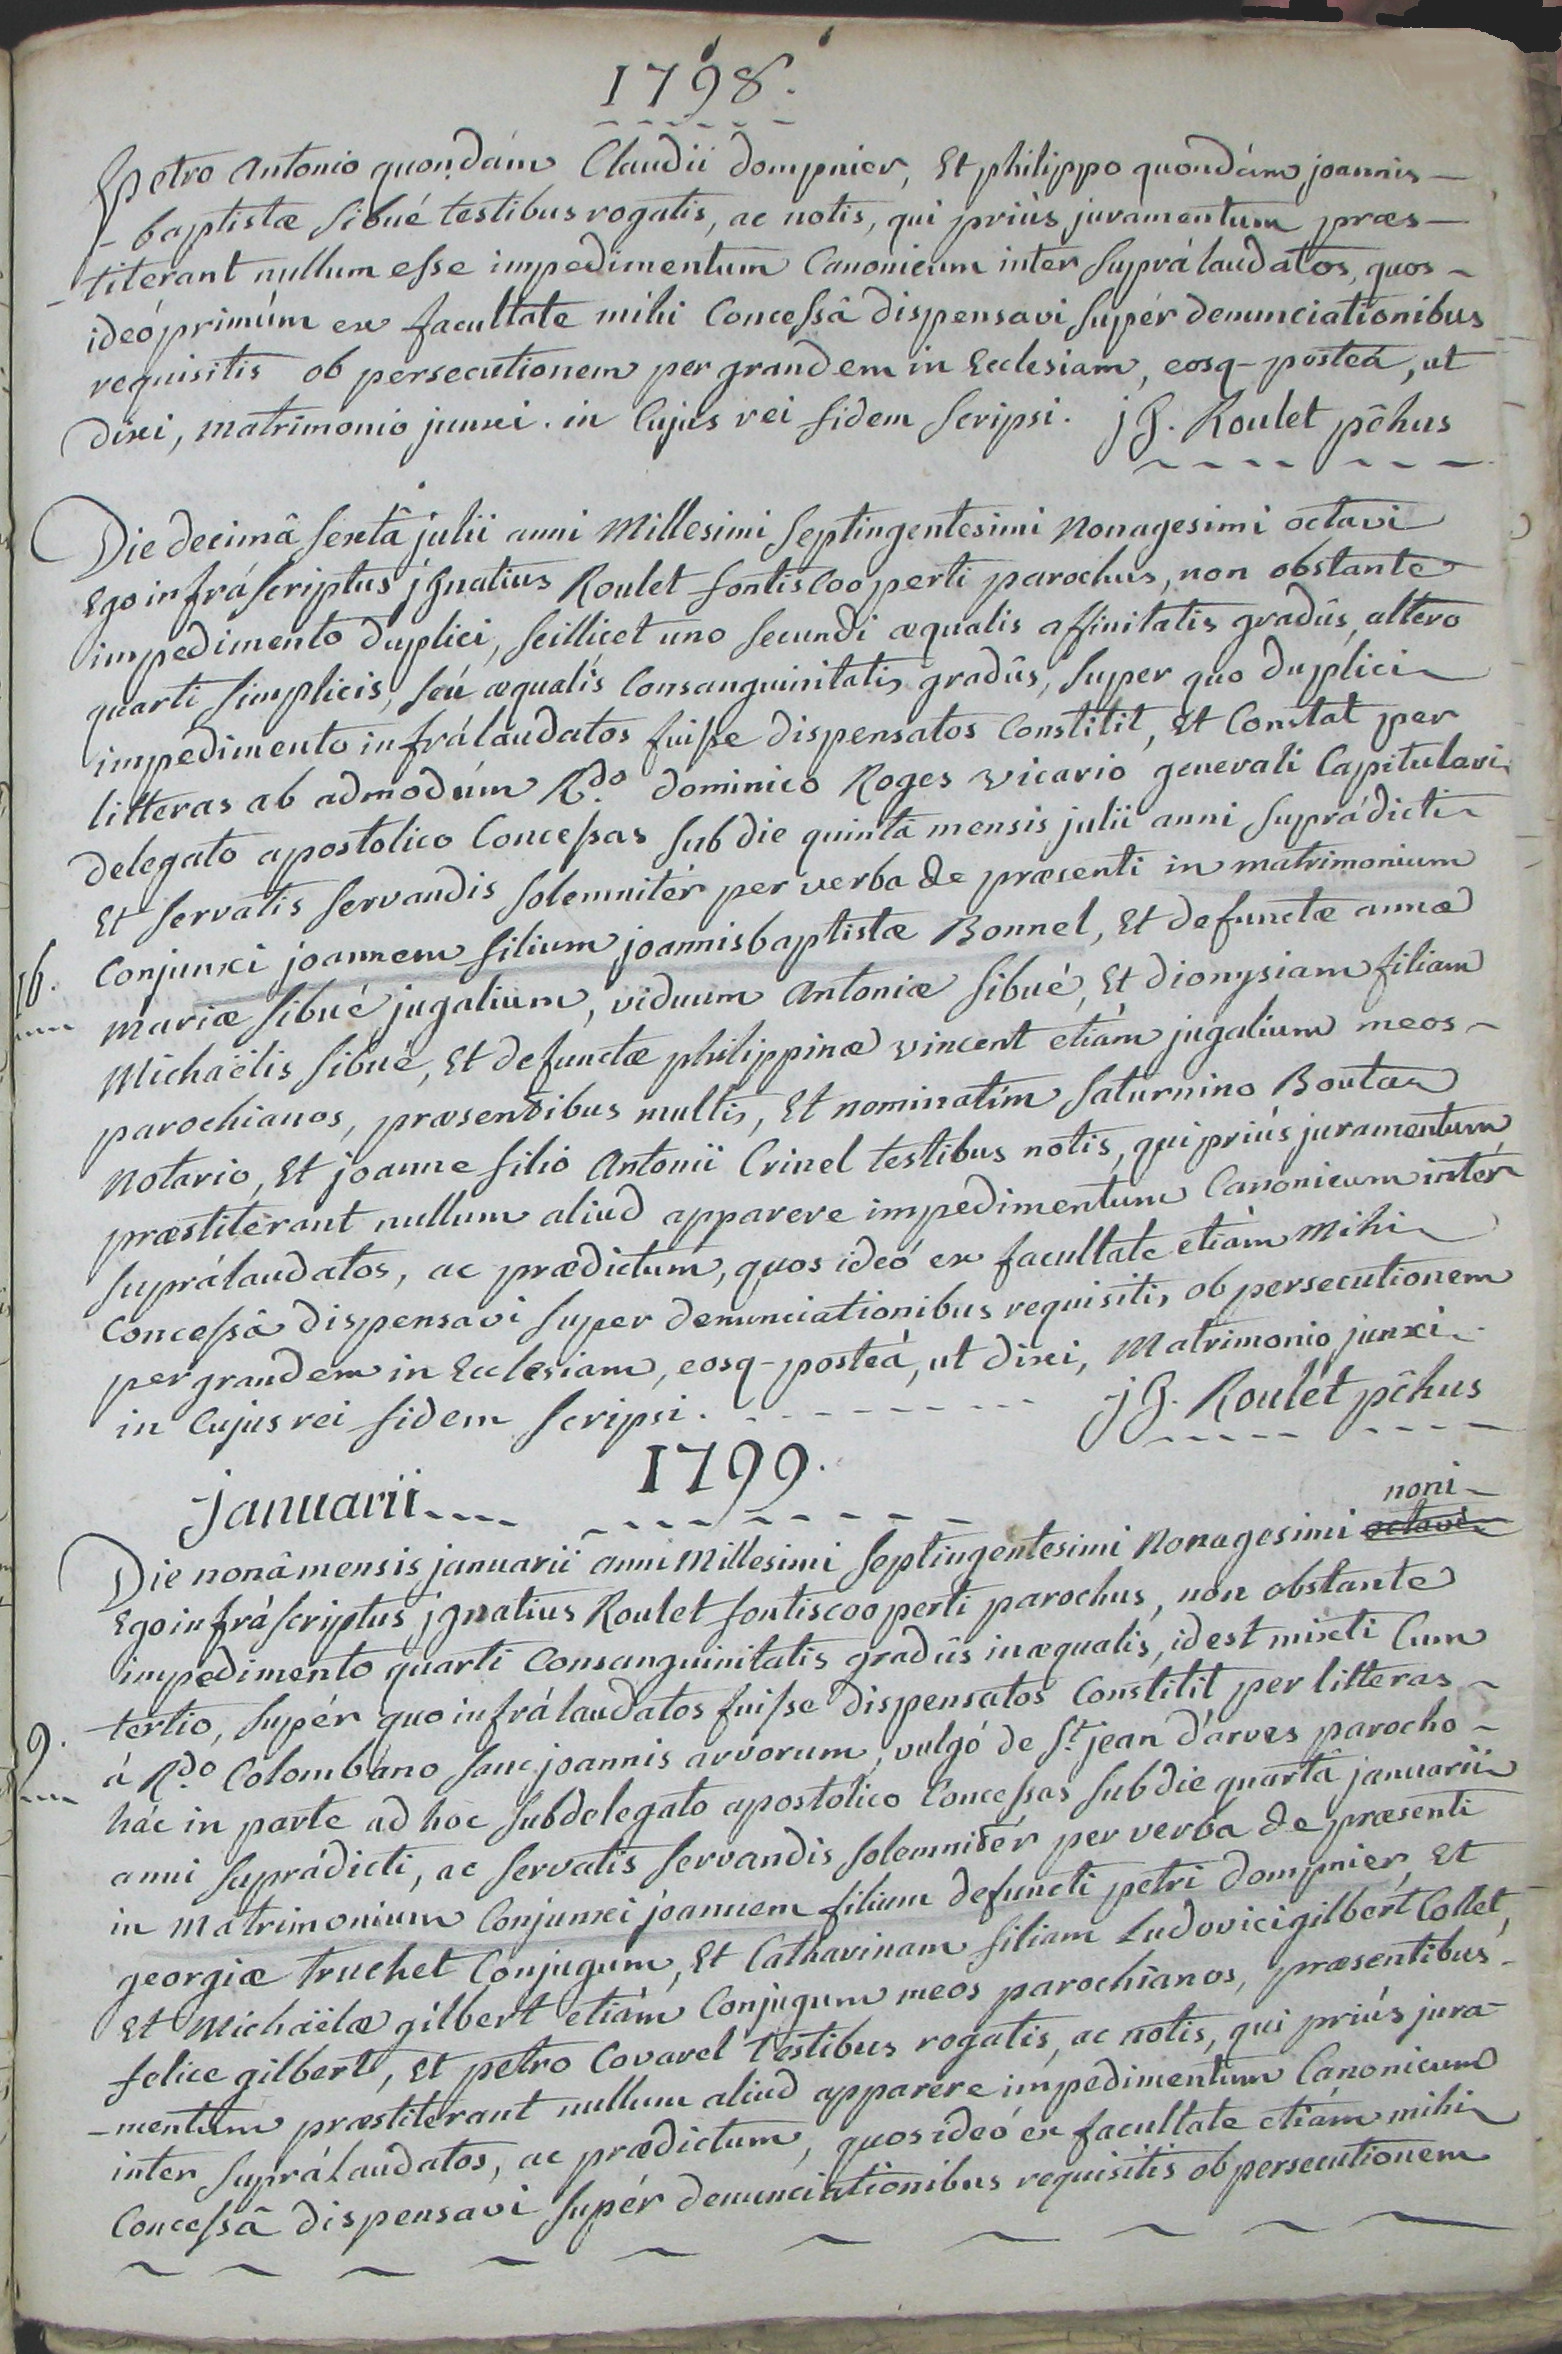 1798.
petro Antonio quondám Claudii dompnier, Et philippo quondám joannis-
-baptistæ Sibué testibus rogatis, ac notis, qui priùs juramentum præs-
-titerant nullum esse impedimentum Canonicum inter Suprálaudatos, quos-
ideó primúm ex facultate mihi Concessâ dispensavi Supér denunciationibus
requisitis ob persecutionem per grandem in Ecclesiam, eosq- posteá, ut
dixi, matrimonio junxi. in Cujus rei fidem Scripsi. jg. Roulet pc̃hus
Die decimâ Sextâ julii anni Millesimi Septingentesimi Nonagesimi octavi
Ego infráscriptus jgnatius Roulet fontiscooperti parochus, non obstante
impedimento duplici, Scillicet uno Secundi æqualis affinitatis gradûs, altero
quarti Simplicis, Seú æqualis Consanguinitatis gradûs, Super quo duplici
impedimento infrálaudatos fuisse dispensatos Constitit, Et Constat per
litteras ab admodúm R.do dominico Roges vicario generali Capitulari
delegato apostolico Concessas Sub die quintâ mensis julii anni Suprádicti
Et Servatis Servandis Solemnitér per verba de præsenti in matrimonium
16. Conjunxi joannem filium joannisbaptistæ Bonnel, Et defunctæ annæ
mariæ Sibué jugalium, viduum Antoniæ Sibué, Et dionysiam filiam
Michaëlis Sibué, Et defunctæ philippinæ vincent etiám jugalium meos-
parochianos, præsentibus multis, Et nominatim Saturnino Boutaz
Notario, Et joanne filio Antonii Crinel testibus notis, qui priús juramentum
præstiterant nullum aliud apparere impedimentum Canonicum intér
Suprálaudatos, ac prædictum, quos ideó ex facultate etiám Mihi
Concessâ dispensavi Super denunciationibus requisitis ob persecutionem
per grandem in Ecclesiam, eosq- posteá, ut dixi, Matrimonio junxi.
in Cujus rei fidem Scripsi. jg. Roulet pc̃hus
1799.
januarii
noni
Die nonâ mensis januarii anni Millesimi Septingentesimi Nonagesimi octavi
Ego infráscriptus jgnatius Roulet fontiscooperti parochus, non obstante
impedimento quarti Consanguinitatis gradûs inæqualis, id est mixti Cum
tertio, Supér quo infrálaudatos fuisse dispensatos Constitit per litteras
9. á R.do Colombáno Sanc joannis arvorum, vulgó de St. jean d'arves parocho-
hác in parte ad hoc Subdelegato apostolico Concessas Sub die quartâ januarii
anni Suprádicti, ac Servatis Servandis Solemnitér per verba de præsenti
in Matrimonium Conjunxi joannem filium defuncti petri dompnier, Et
georgiæ truchet Conjugum, Et Catharinam filiam Ludovicigilbert Collet,
Et Michaëlæ gilbert etiám Conjugum meos parochianos, præsentibus-
felice gilbert, Et petro Covarel testibus rogatis, ac notis, qui priús jura-
-mentum præstiterant nullum aliud apparere impedimentum Canonicum
inter SupráLaudatos, ac prædictum, quos ideó ex facultate etiám mihi
Concessâ dispensavi Supér denunciationibus requisitis ob persecutionem